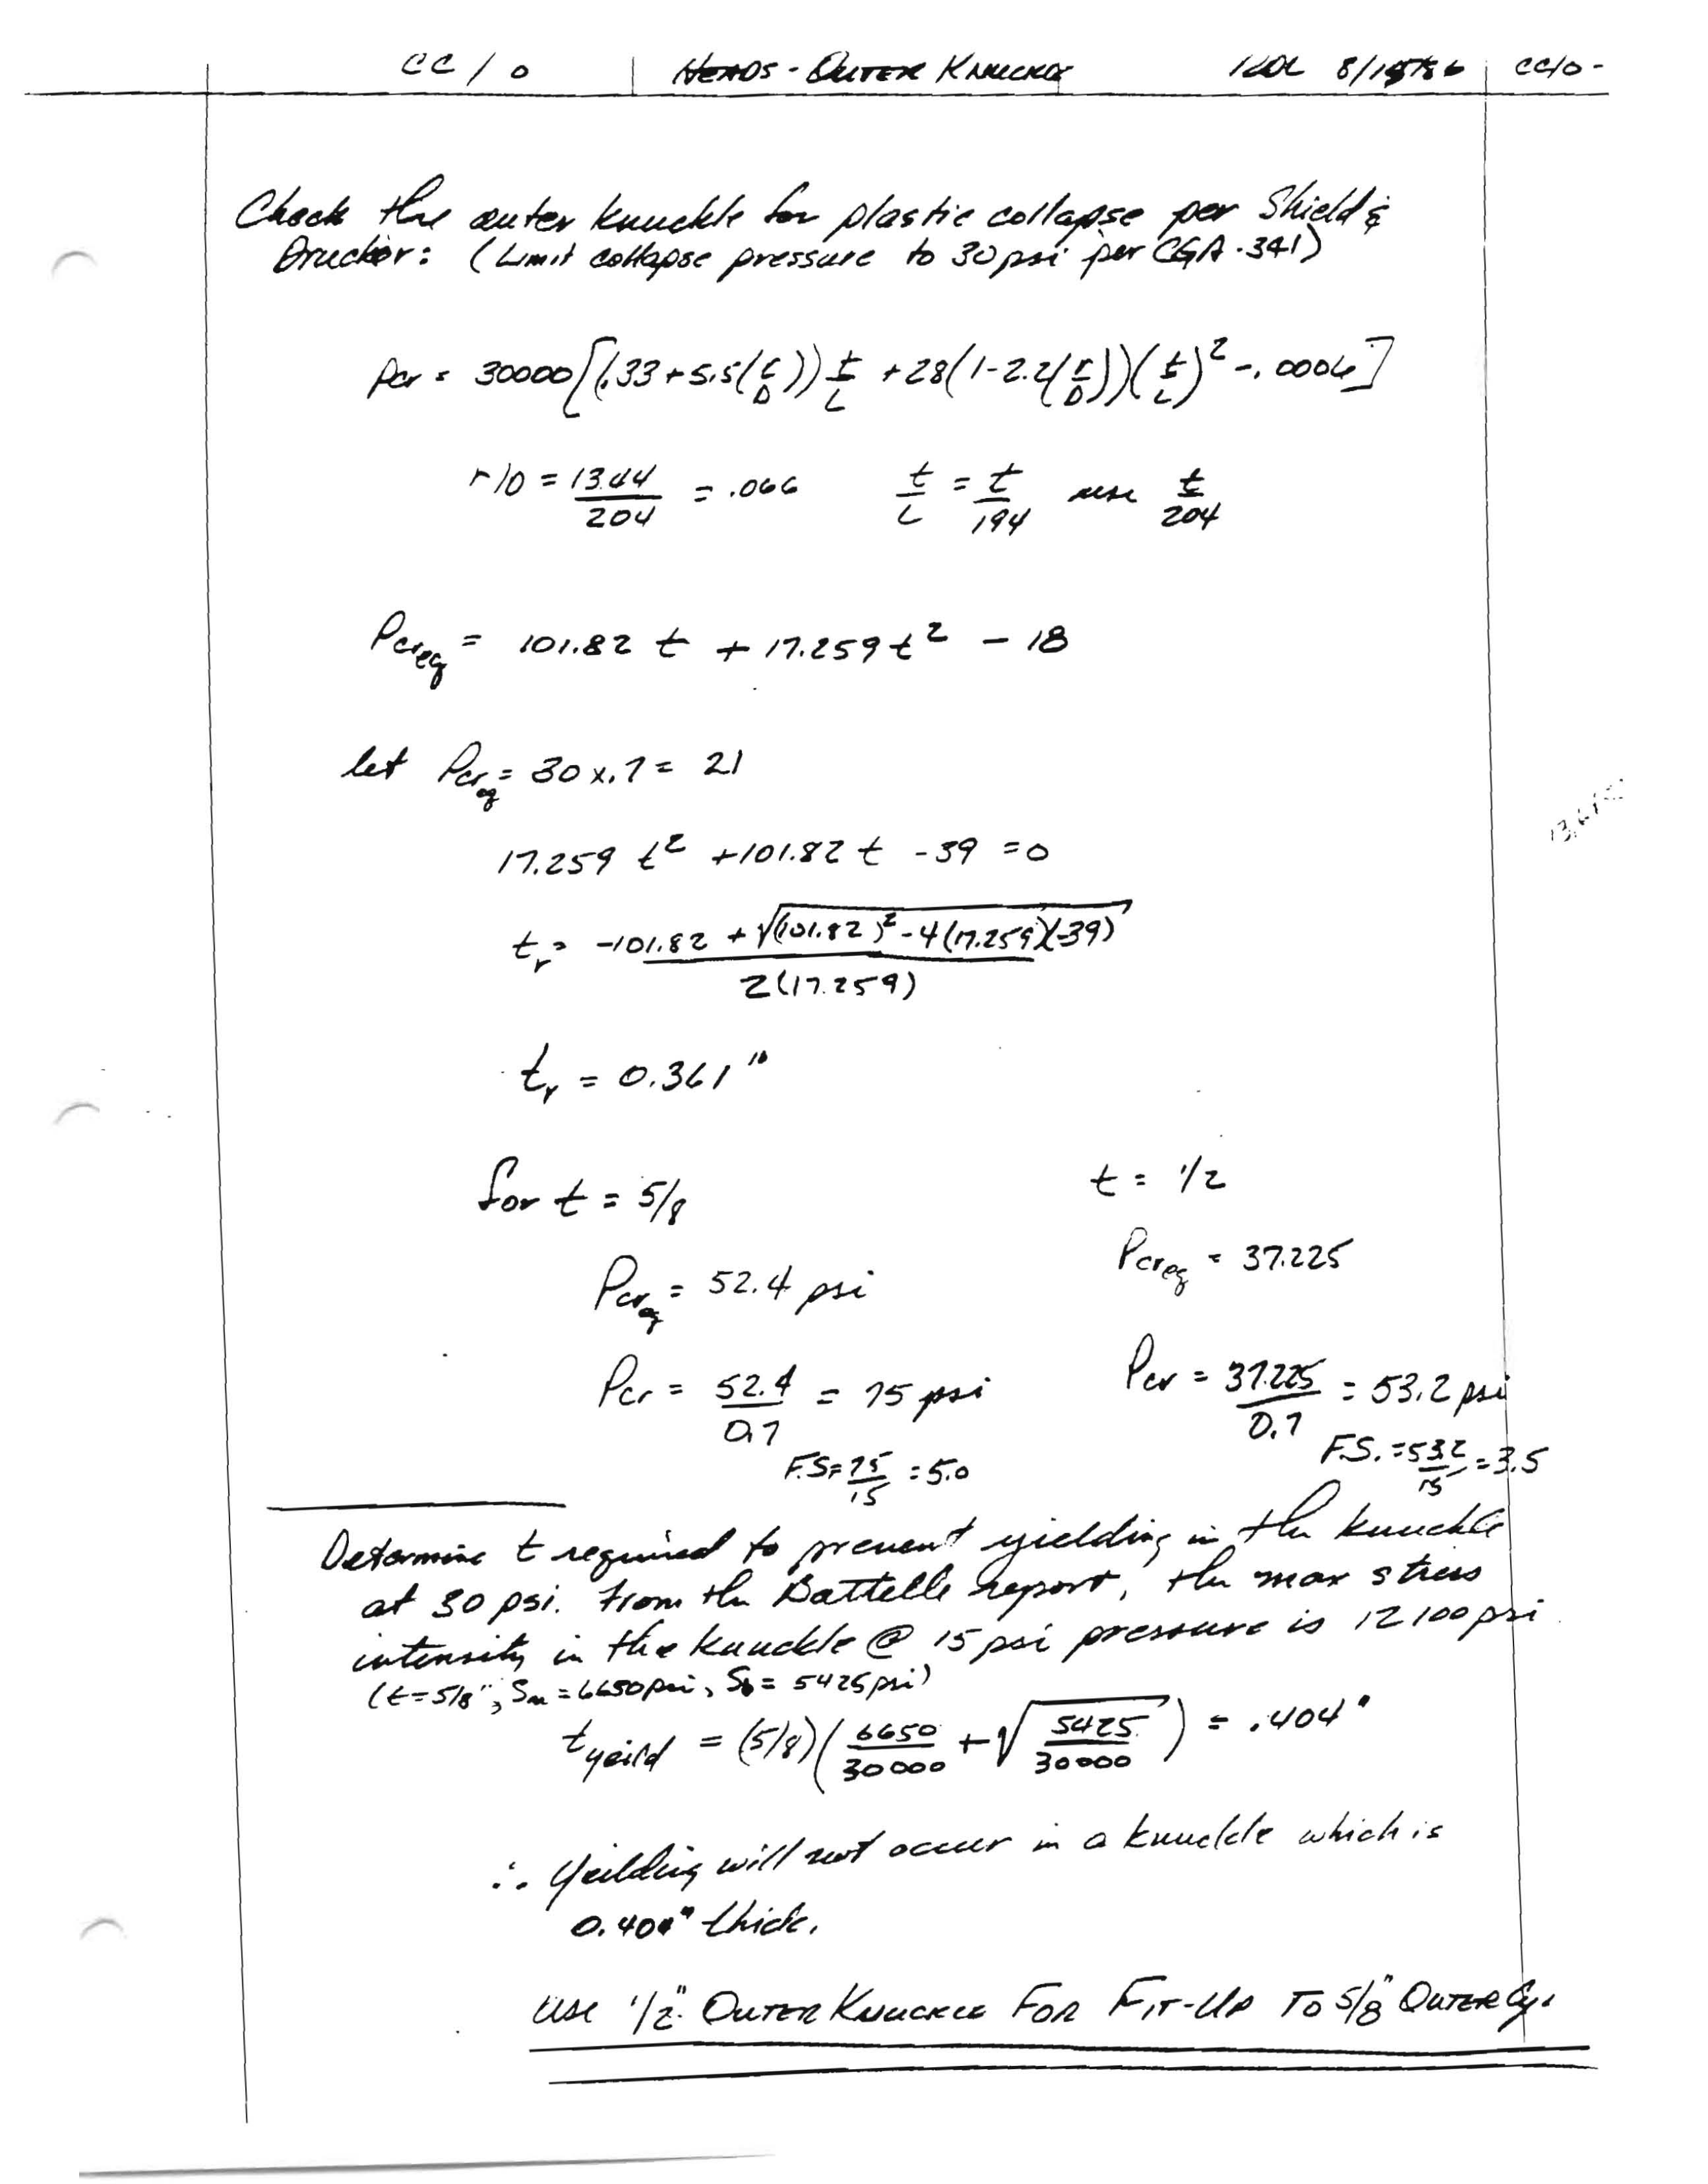 CC/0 HEADS - OUTER KNUCKLE 8/15/86 CC/0 -
Check the outer knuckle for plastic collapse per Shield &
Drucker: (Limit collapse pressure to 30 psi per CGA-341)
Pcr = 30000[(.33+5.5(r/D)) t/L + 28(1-2.2(r/D))(t/L)² - .0006]
r/D = 13.44/204 = .066 t/L = t/194 use t/204
Pcreq = 101.82 t + 17.259 t² - 18
let Pcreq = 30 x .7 = 21
17.259 t² + 101.82 t - 39 = 0
tr = -101.82 + √((101.82)² - 4(17.259)(-39)) / 2(17.259)
tr = 0.361"
for t = 5/8 t = 1/2
Pcreq = 52.4 psi Pcreq = 37.225
Pcr = 52.4/0.7 = 75 psi Pcr = 37.225/0.7 = 53.2 psi
F.S = 75/15 = 5.0 F.S. = 53.2/15 = 3.5
Determine t required to prevent yielding in the knuckle
at 30 psi. From the Battelle report, the max stress
intensity in the knuckle @ 15 psi pressure is 12100 psi
(t = 5/8", Sm = 6650 psi, Sb = 5425 psi)
tyeild = (5/8)(6650/30000 + √(5425/30000)) = .404"
∴ Yeilding will not occur in a knuckle which is
0.404" thick.
USE 1/2" OUTER KNUCKLE FOR FIT-UP TO 5/8" OUTER Cyl